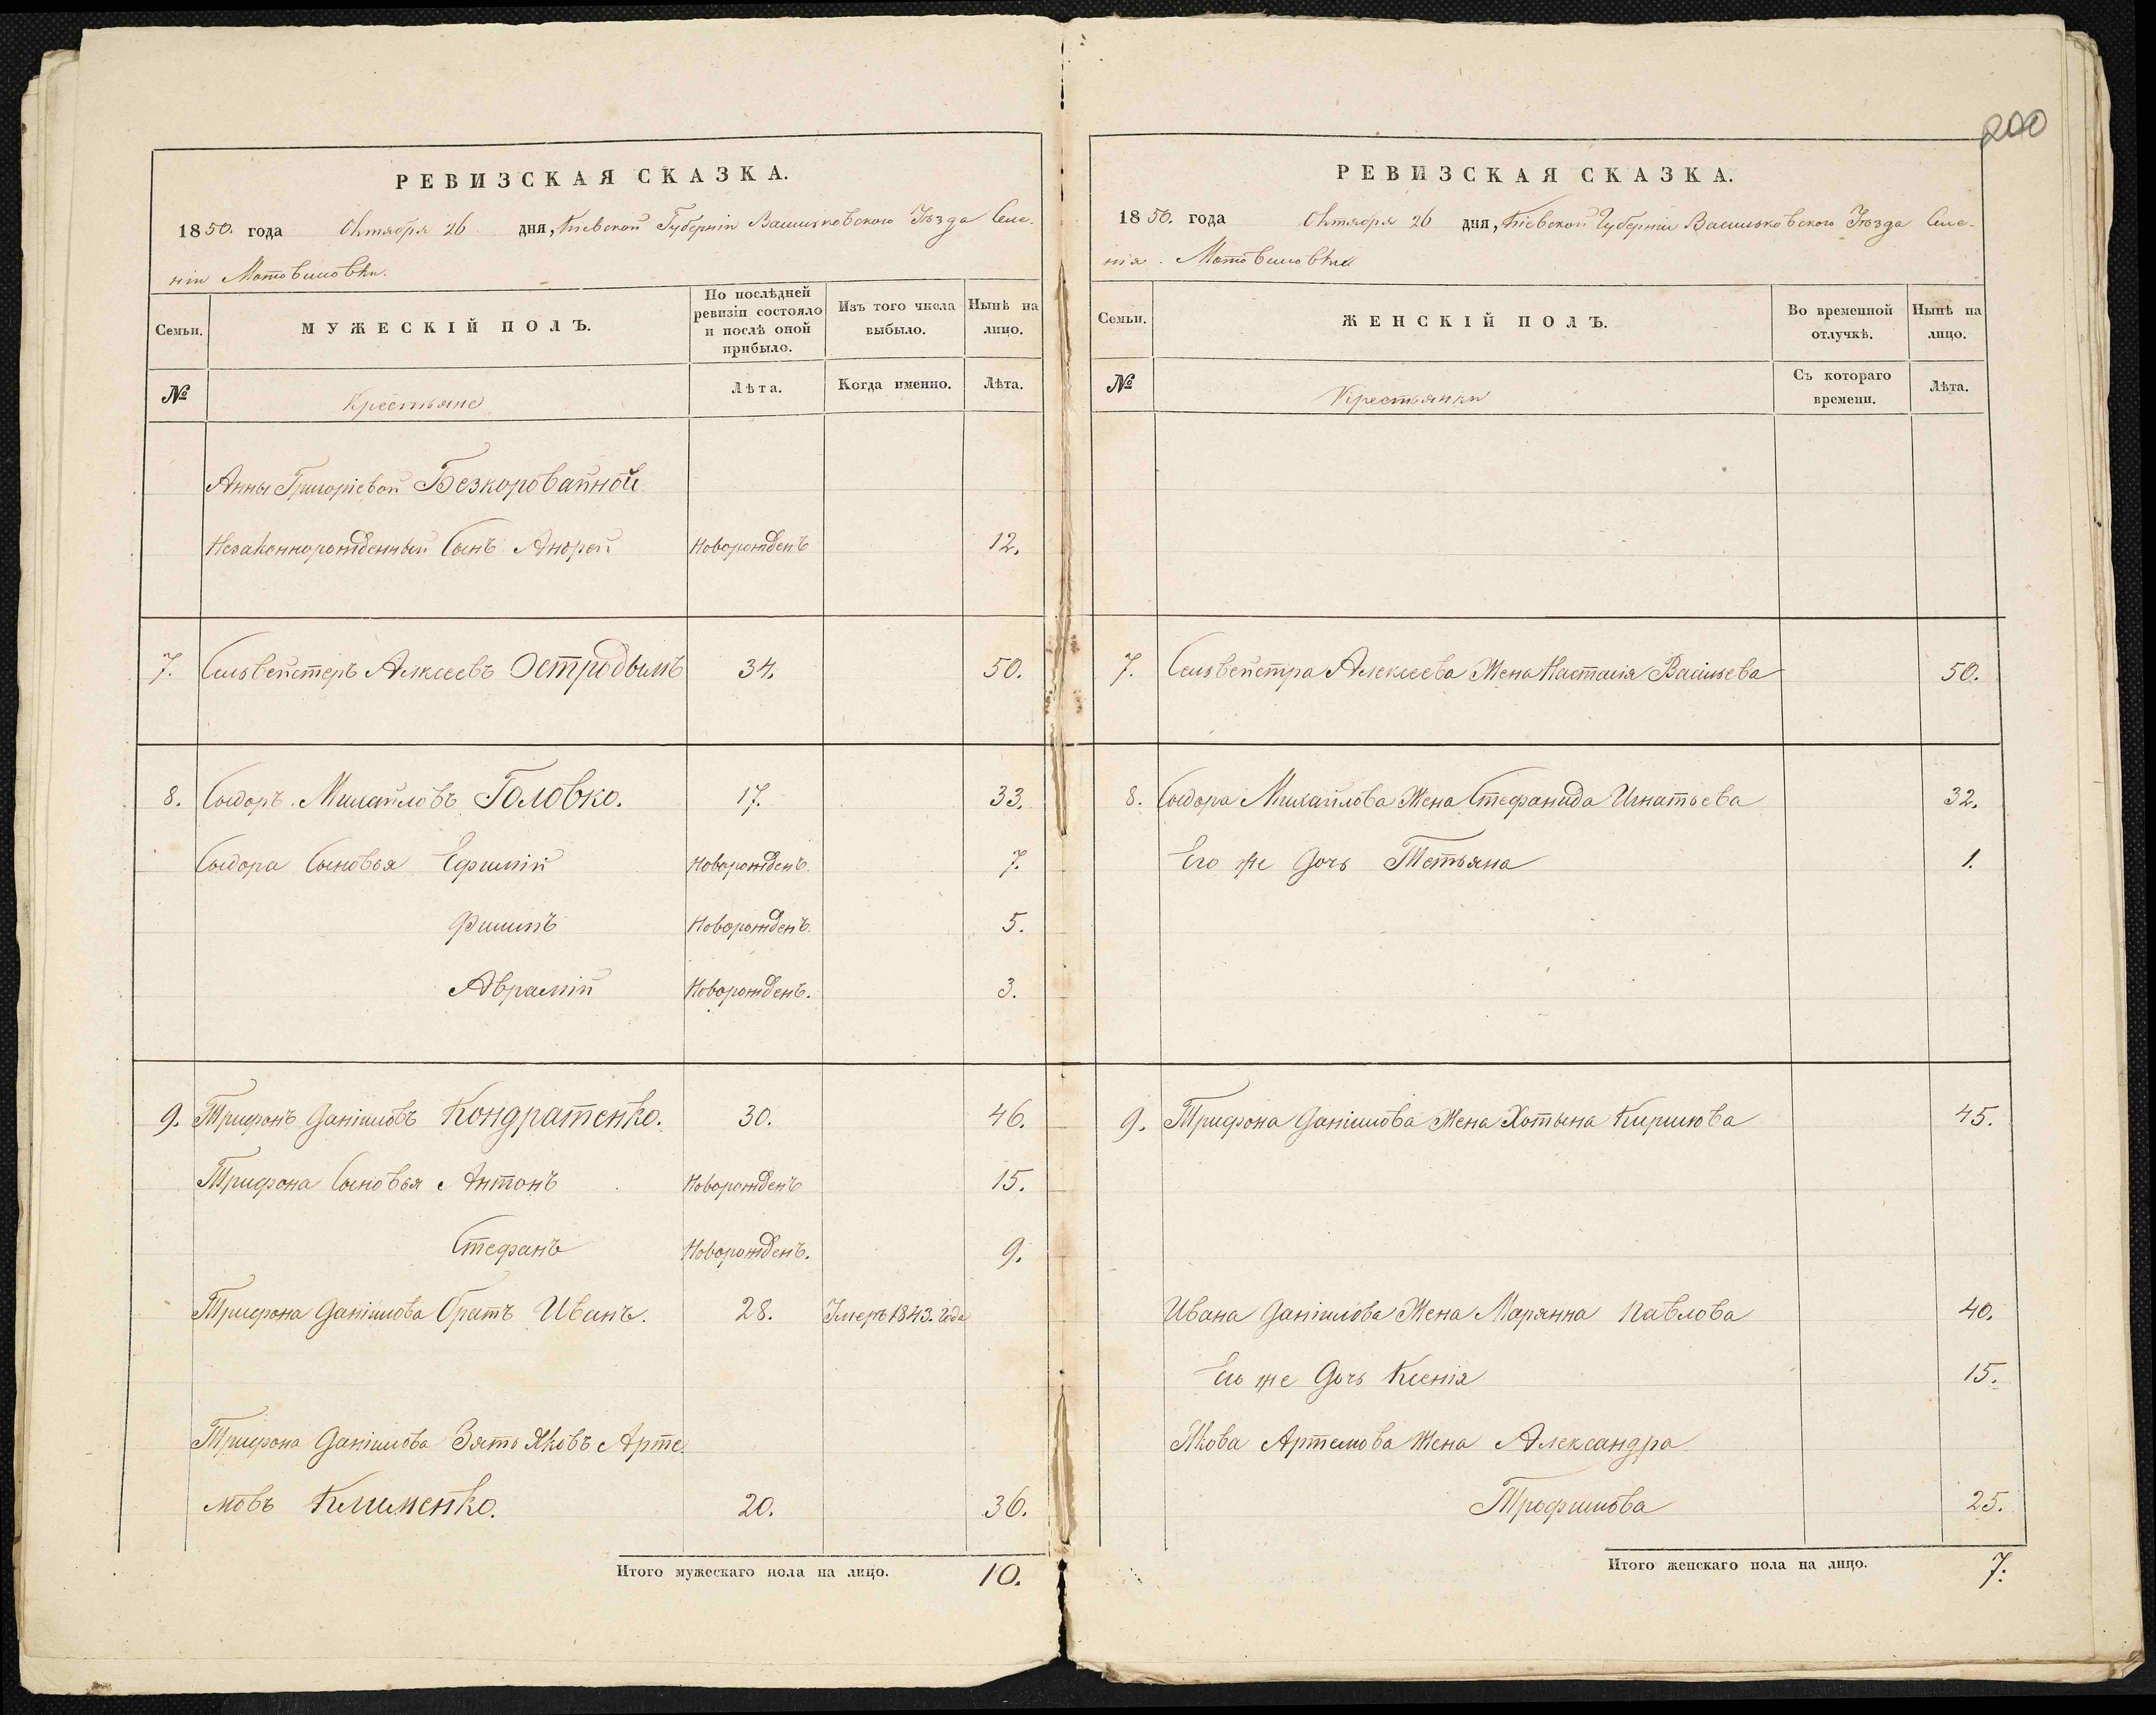 200
РЕВИЗСКАЯ СКАЗКА.
1850. года Октября 26 дня, Кіевской Губерніи Васильковскаго Уѣзда Селе-
ніи Мотовиловки.
Семьи.
МУЖЕСКІЙ ПОЛЪ.
По послѣдней ревизіи состояло и послѣ оной прибыло.
Изъ того числа выбыло.
Нынѣ на лицо.
№
Крестьяне
Лѣта.
Когда именно.
Лѣта.
Анны Григоріевой Безкоровайной
Незаконнорожденный Сынъ Андрей Новорожденъ 12.
7. Сильвейстеръ Алексеевъ Остродымъ 34. 50.
8. Сыдоръ Михайловъ Головко. 17. 33.
Сыдора Сыновья Ефимій Новорожденъ. 7.
Филипъ Новорожденъ. 5.
Аврамій Новорожденъ. 3.
9. Трифонъ Даніиловъ Кондратенко. 30. 46.
Трифона Сыновья Антонъ Новорожденъ 15.
Стефанъ Новорожденъ. 9.
Трифона Даніилова Братъ Иванъ. 28. Умеръ 1843. года
Трифона Даніилова Зять Яковъ Арте
мовъ Клименко. 20. 36.
Итого мужескаго пола на лицо. 10.
РЕВИЗСКАЯ СКАЗКА.
1850. года Октября 26 дня, Кіевской Губерніи Васильковскаго Уѣзда Селе-
нія Мотовиловки
Семьи.
ЖЕНСКІЙ ПОЛЪ.
Во временной отлучкѣ.
Нынѣ на лицо.
№
Крестьянки
Съ котораго времени.
Лѣта.
7. Сельвейстра Алексеева Жена Настасія Васильева 50.
8. Сыдора Михайлова Жена Стефанида Игнатьева 32.
Его же Дочь Тетьяна 1.
9. Трифона Даніилова Жена Хотына Кирилова 45.
Ивана Даніилова Жена Марянна Павлова 40.
Его же Дочь Ксенія 15.
Якова Артемова Жена Александра
Трофимова 25.
Итого женскаго пола на лицо. 7.